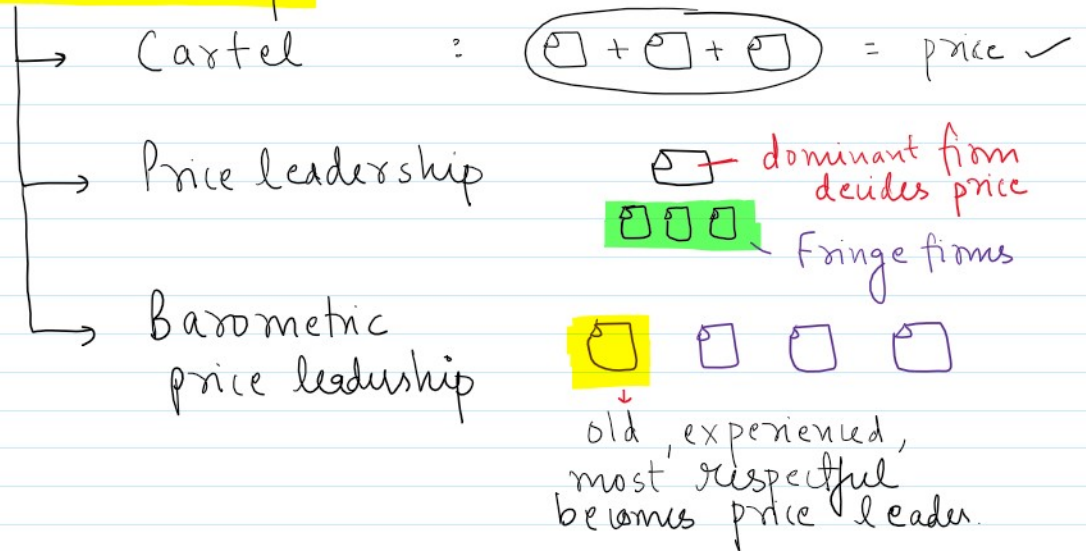 Cartel : + + = price ✓
Price leadership
dominant firm
decides price
Fringe firms
Barometric
price leadership
old, experienced,
most respectful
becomes price leader.